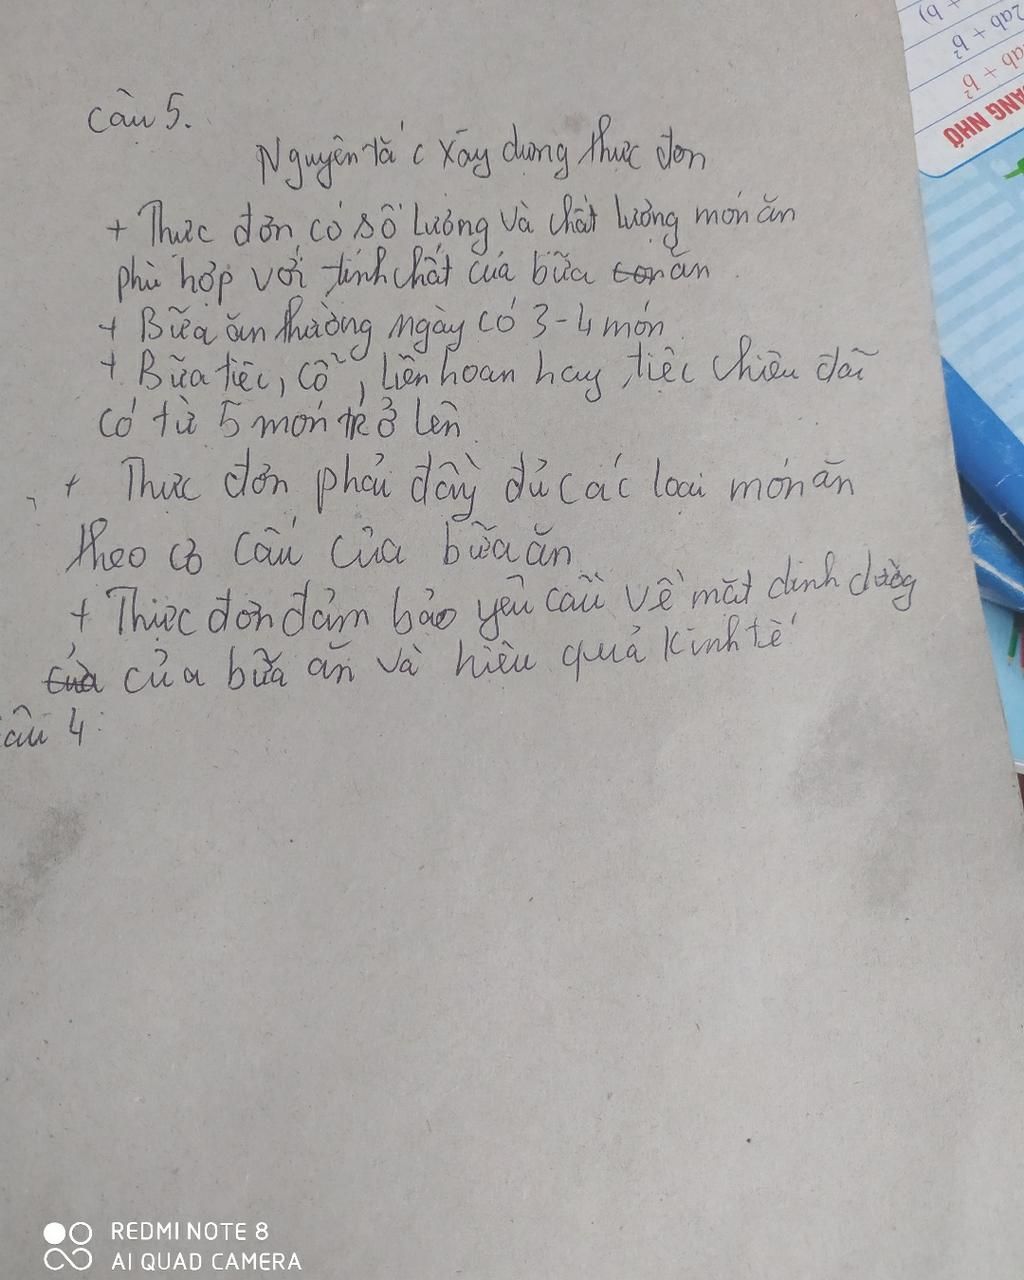 Câu 5.
Nguyên tắc xây dựng thực đơn
+ Thực đơn có số lượng và chất lượng món ăn
phù hợp với tính chất của bữa ăn.
+ Bữa ăn thường ngày có 3-4 món
+ Bữa tiệc, cỗ, liên hoan hay tiệc chiêu đãi
có từ 5 món trở lên
+ Thực đơn phải đầy đủ các loại món ăn
theo cơ cấu của bữa ăn
+ Thực đơn đảm bảo yêu cầu về mặt dinh dưỡng
của của bữa ăn và hiệu quả kinh tế
âu 4:
2ab + b²
ab + b²
ANG NHỚ
REDMI NOTE 8
AI QUAD CAMERA